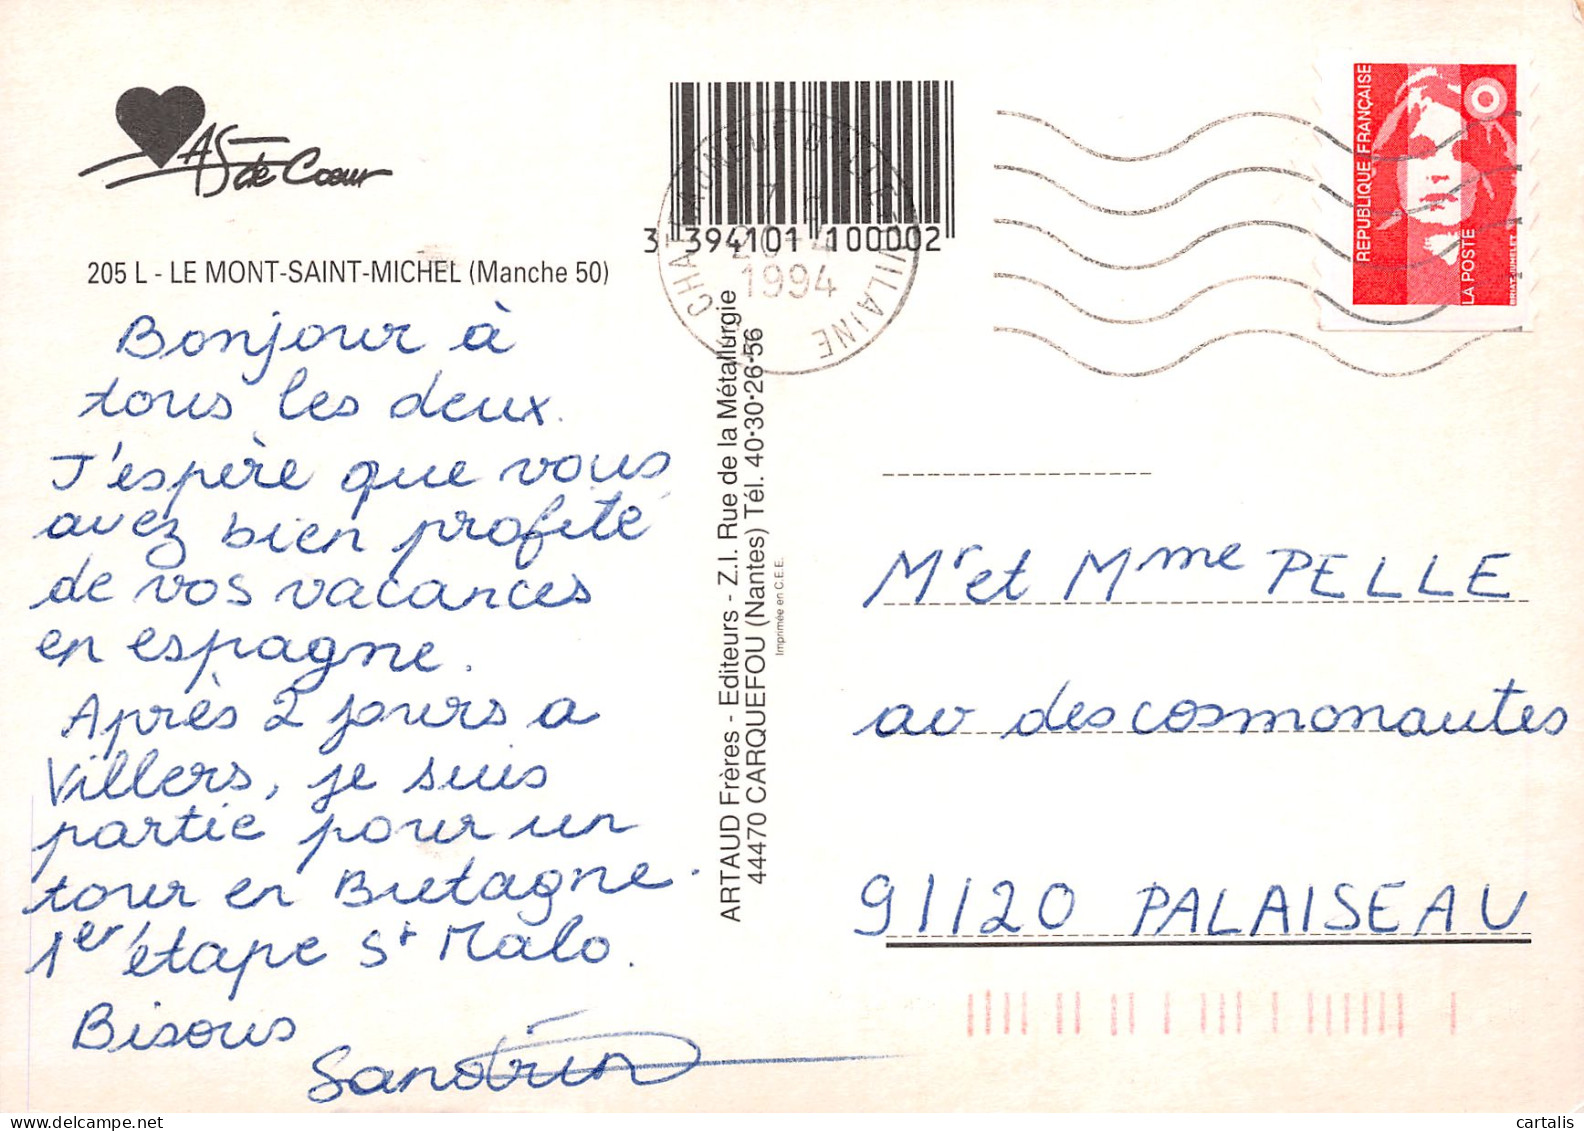 AS de Coeur
205 L - LE MONT-SAINT-MICHEL (Manche 50)
Bonjour à
tous les deux.
J'espère que vous
avez bien profité
de vos vacances
en espagne.
Après 2 jours a
Villers, je suis
partie pour un
tour en Bretagne.
1er étape St Malo.
Bisous
Sandrin
3 394101 100002
1994
VILAINE
ARTAUD Frères - Editeurs - Z.I. Rue de la Métallurgie
44470 CARQUEFOU (Nantes) Tél. 40-30-26-56
Imprimée en C.E.E.
REPUBLIQUE FRANÇAISE
LA POSTE
BRIAT-JUMELET
Mr et Mme PELLE
av des cosmonautes
91120 PALAISEAU
cartalis